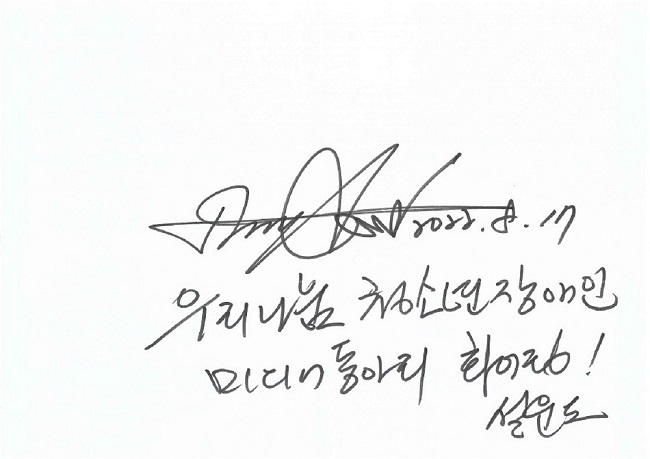 2022.8.17
우리나눔 청소년장애인
미디어동아리 화이팅!
설운도